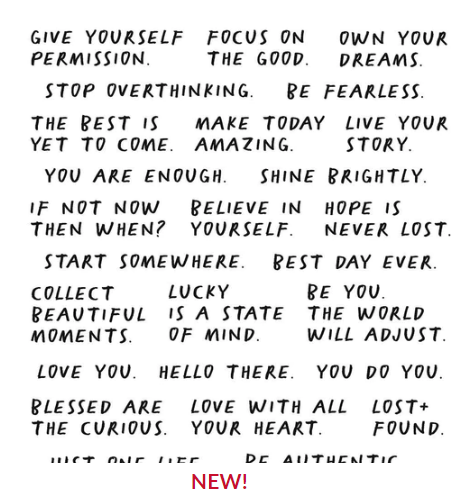 GIVE YOURSELF PERMISSION.
FOCUS ON THE GOOD.
OWN YOUR DREAMS.
STOP OVERTHINKING.
BE FEARLESS.
THE BEST IS YET TO COME.
MAKE TODAY AMAZING.
LIVE YOUR STORY.
YOU ARE ENOUGH.
SHINE BRIGHTLY.
IF NOT NOW THEN WHEN?
BELIEVE IN YOURSELF.
HOPE IS NEVER LOST.
START SOMEWHERE.
BEST DAY EVER.
COLLECT BEAUTIFUL MOMENTS.
LUCKY IS A STATE OF MIND.
BE YOU. THE WORLD WILL ADJUST.
LOVE YOU.
HELLO THERE.
YOU DO YOU.
BLESSED ARE THE CURIOUS.
LOVE WITH ALL YOUR HEART.
LOST+ FOUND.
JUST ONE LIFE
BE AUTHENTIC
NEW!